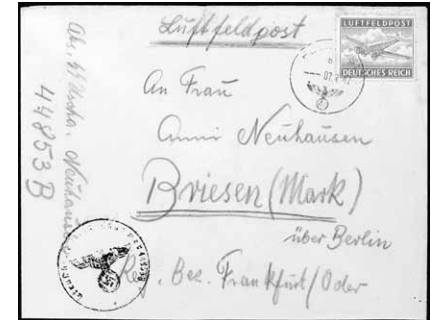 Luftfeldpost
LUFTFELDPOST
DEUTSCHES REICH
An Frau
Anni Neuhausen
Briesen (Mark)
über Berlin
Reg. Bez. Frankfurt/Oder
Abs. ᛋᛋ Uscha. Neuhausen
44853 B